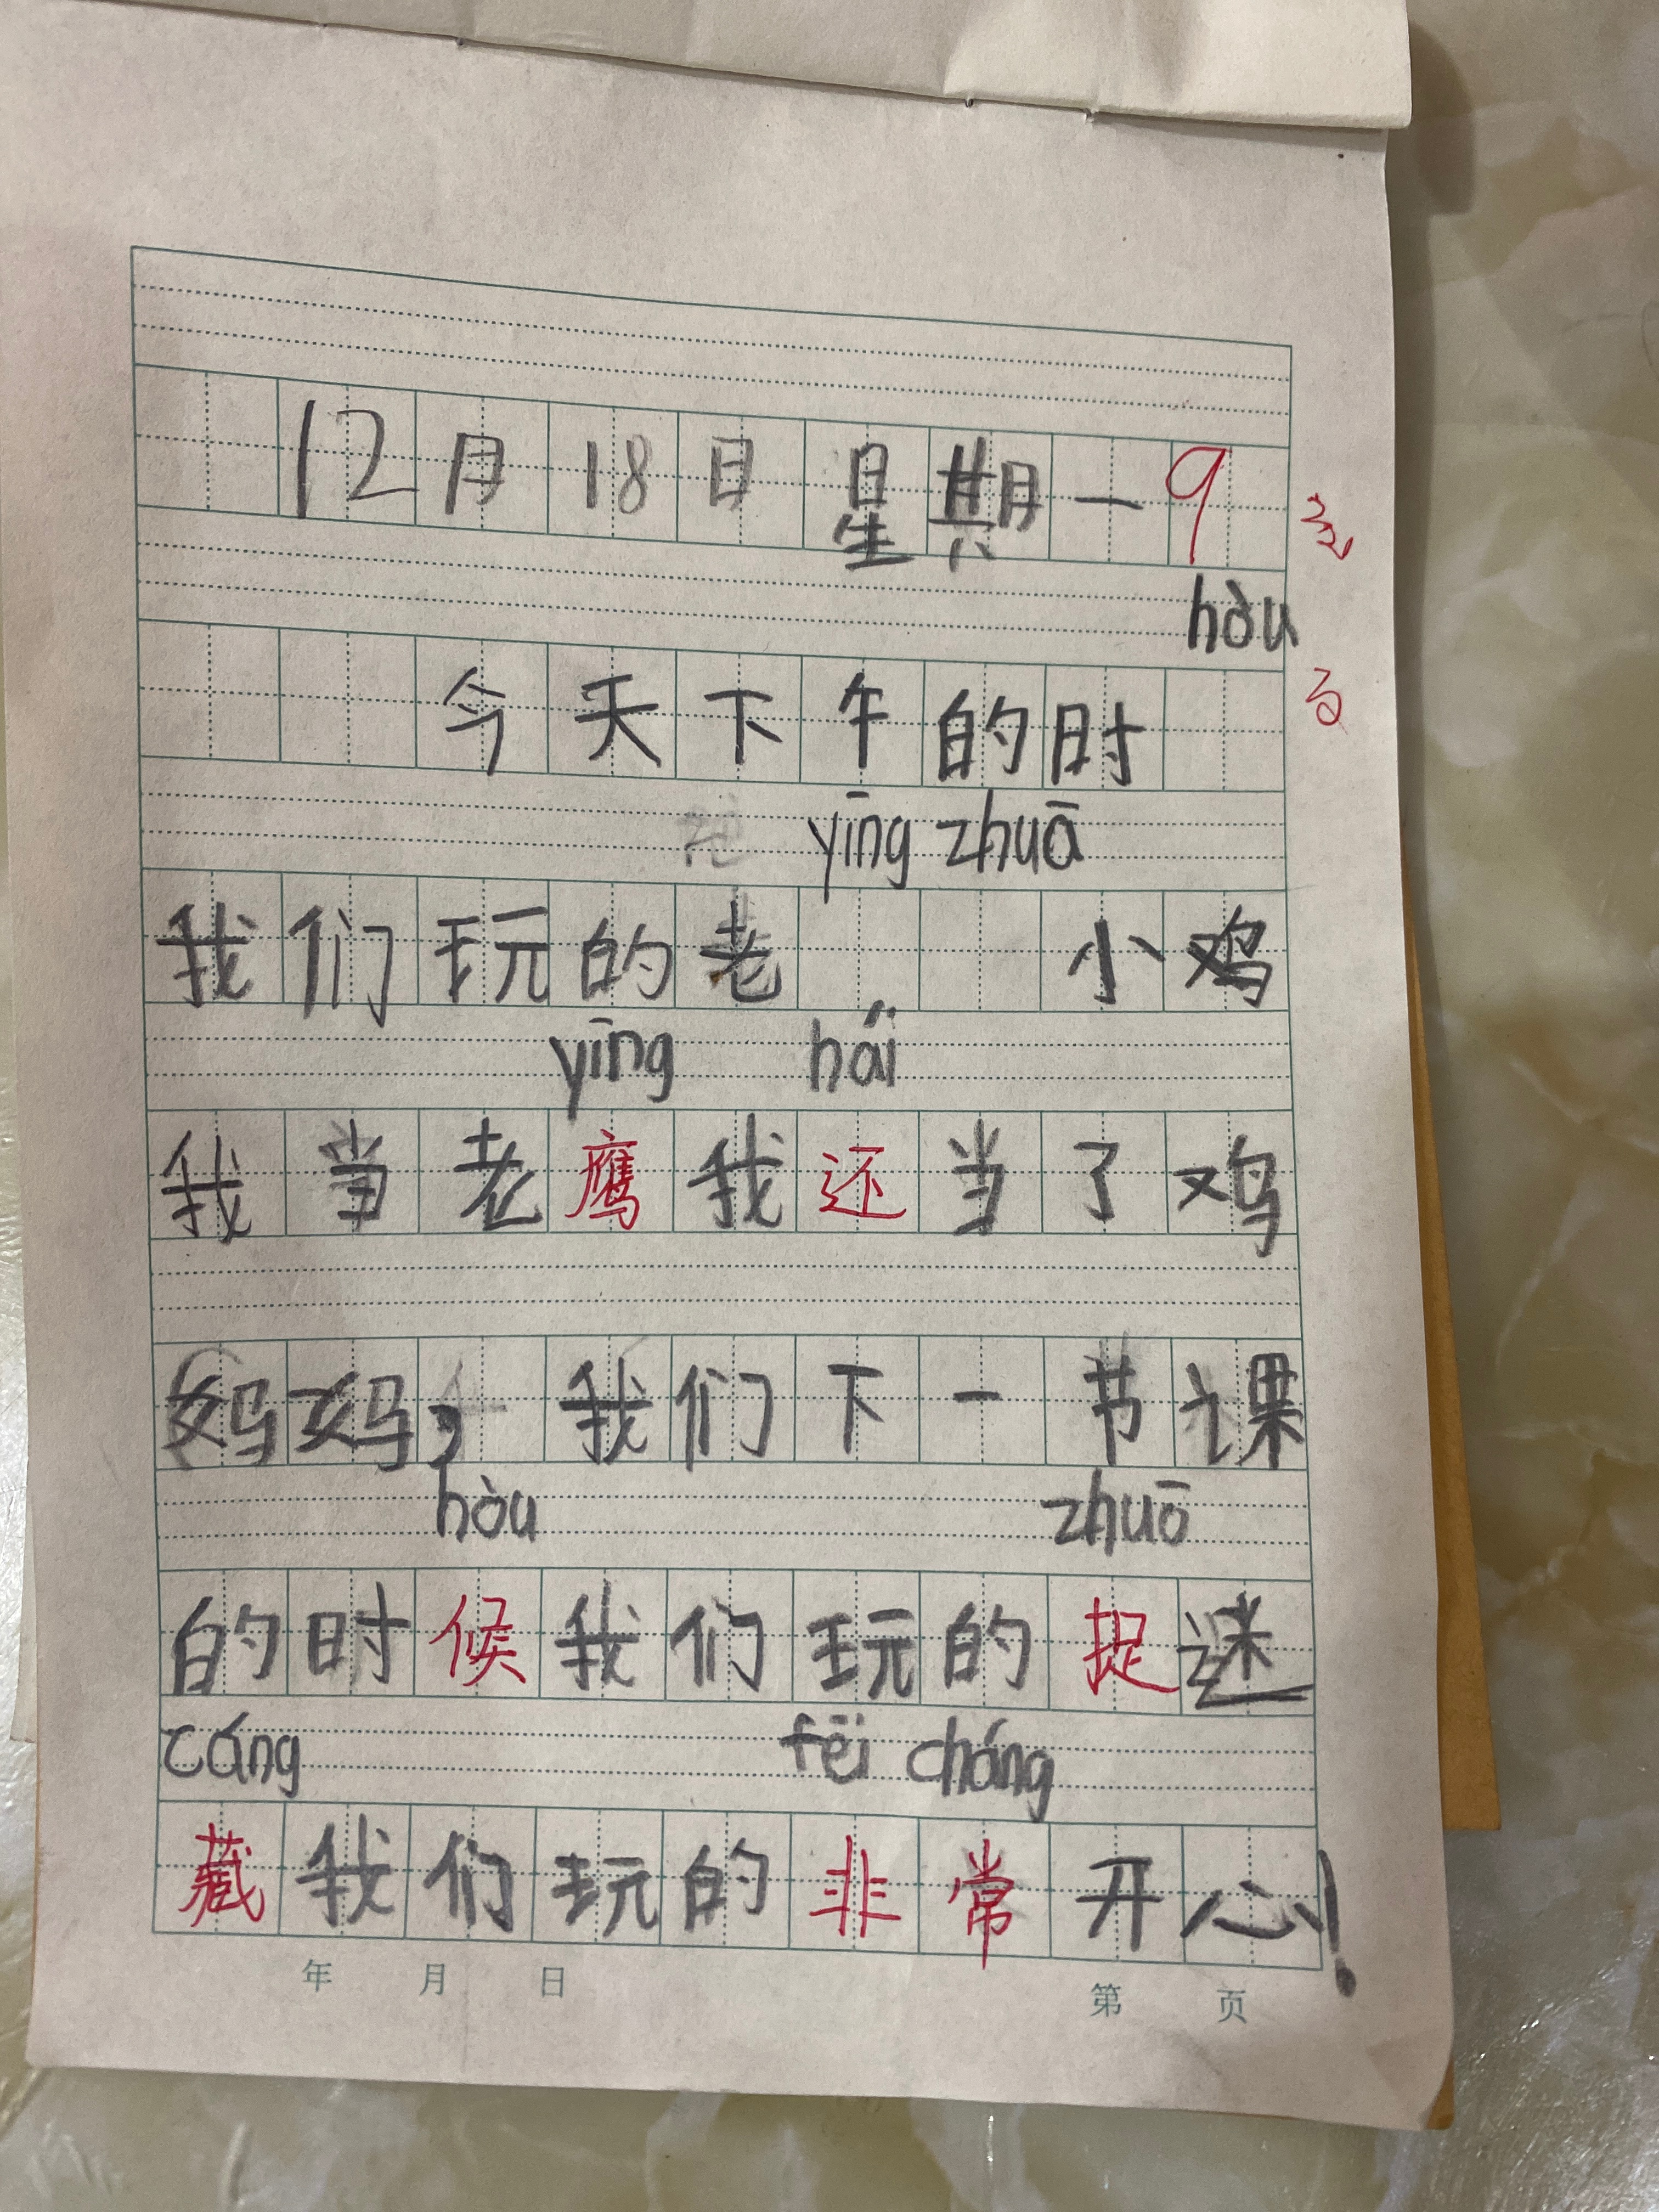 12月18日星期一9
hòu
今天下午的时
yīng zhuā
我们玩的老 小鸡
yīng hái
我当老鹰我还当了鸡
妈妈，我们下一节课
hòu zhuō
的时候我们玩的捉迷
cáng fēi cháng
藏我们玩的非常开心！
年 月 日 第 页